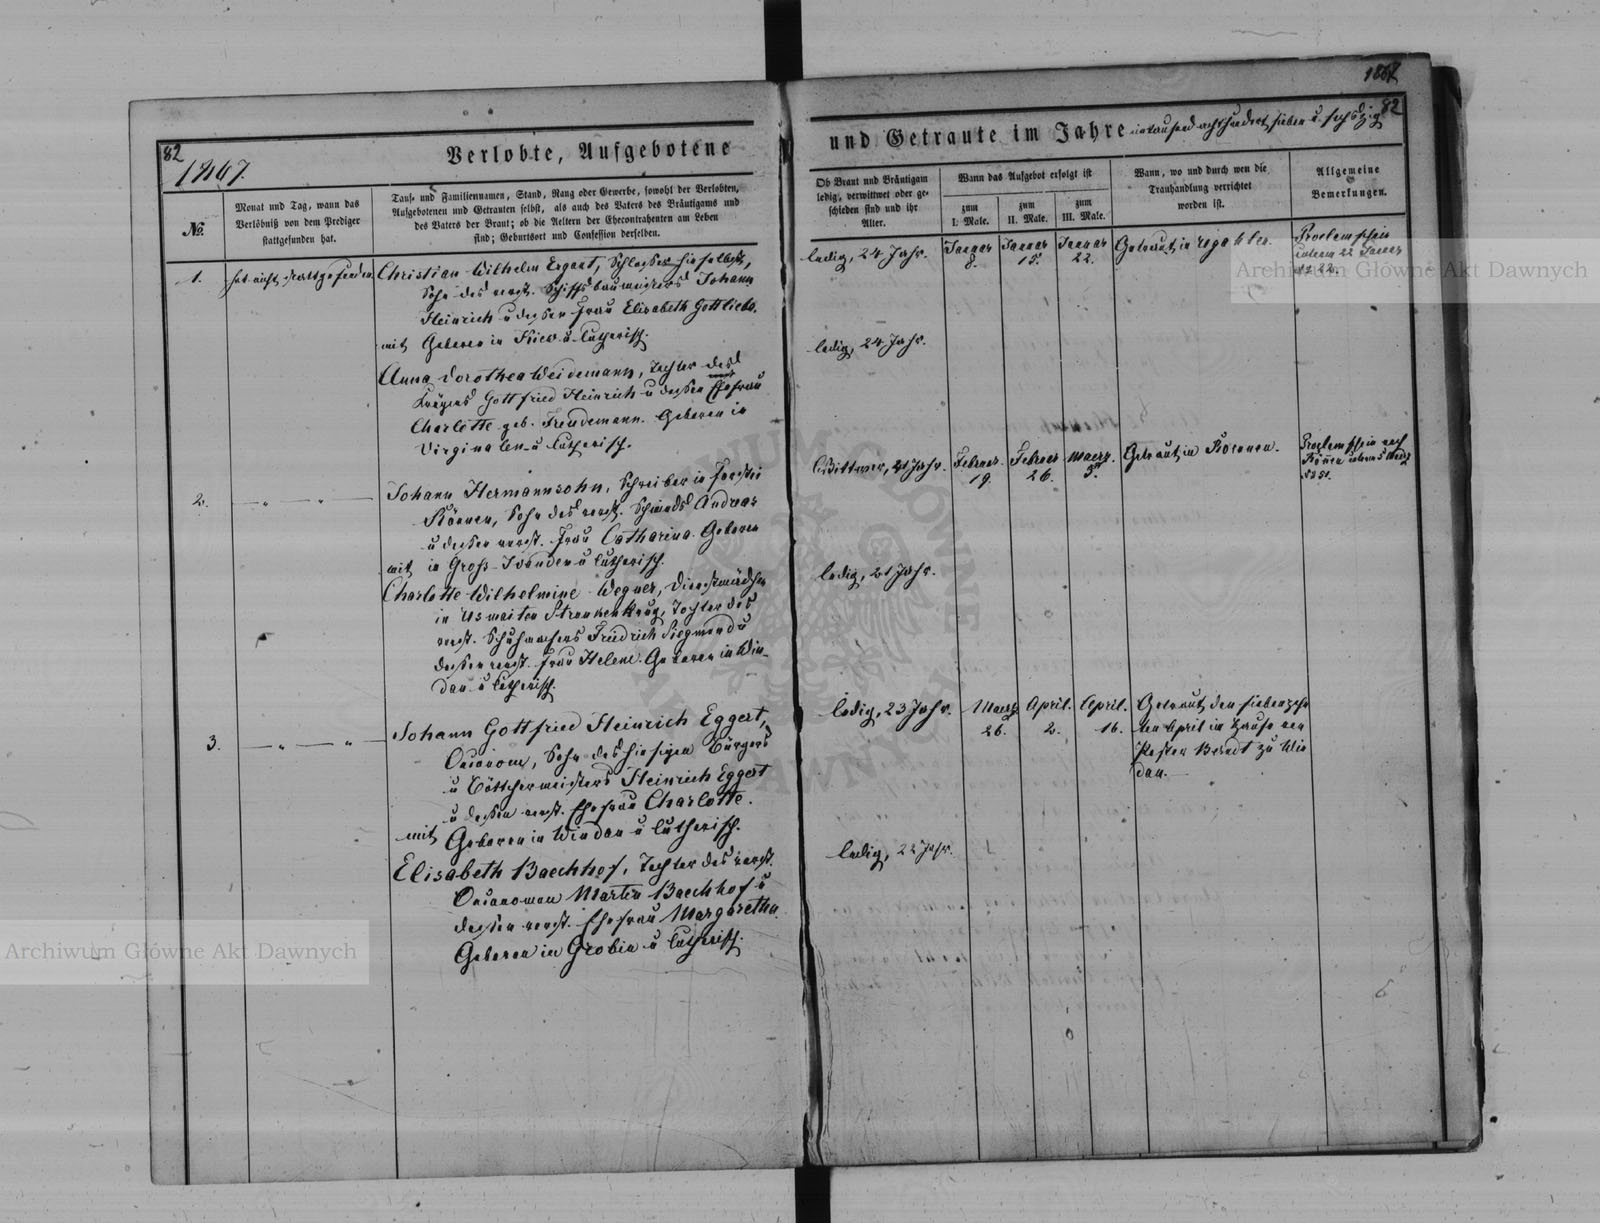 82
1867.
Verlobte, Aufgebotene
No.
Monat und Tag, wann das
Verlöbniß von dem Prediger
stattgefunden hat.
Tauf- und Familiennamen, Stand, Rang oder Gewerbe, sowohl der Verlobten,
Aufgebotenen und Getrauten selbst, als auch des Vaters des Bräutigams und
des Vaters der Braut; ob die Aeltern der Ehecontrahenten am Leben
sind; Geburtsort und Confession derselben.
1.
hat nicht stattgefunden
Christian Wilhelm Ergant, Schlosser hieselbst,
Sohn des verst. Schiffsbaumeisters Johann
Heinrich u dessen Frau Elisabeth Gottliebe.
mit Geboren in Kiew u lutherisch.
Anna Dorothea Weidemann, Tochter des
Krügers Gottfried Heinrich u dessen Ehefrau
Charlotte geb. Freudemann. Geboren in
Virginalen u lutherisch.
2.
— " — " —
Johann Hermannsohn, Schreiber in Forstei
Rönnen, Sohn des verst. Schmieds Andreas
u dessen verst. Frau Catharina. Geboren
mit in Gross-Ivanden u lutherisch.
Charlotte Wilhelmine Wegner, Dienstmädchen
in Usmaiten Strankenkrug, Tochter des
verst. Schuhmachers Friedrich Siegmund u
dessen verst. Frau Helene. Geboren in Win-
dau u lutherisch.
3.
— " — " —
Johann Gottfried Heinrich Eggert,
Oeconom, Sohn des hiesigen Bürgers
u Böttchermeisters Heinrich Eggert
u dessen verst. Ehefrau Charlotte.
mit Geboren in Windau u lutherisch.
Elisabeth Baechhof, Tochter des verst.
Oeconomen Martin Baechhof u
dessen verst. Ehefrau Margaretha.
Geboren in Grobin u lutherisch.
1867
82
und Getraute im Jahre eintausend achthundert sieben u. sechszig
Ob Braut und Bräutigam
ledig, verwittwet oder ge-
schieden sind und ihr
Alter.
Wann das Aufgebot erfolgt ist
zum
I. Male.
zum
II. Male.
zum
III. Male.
Wann, wo und durch wen die
Trauhandlung verrichtet
worden ist.
Allgemeine
Bemerkungen.
ledig, 24 Jahr.
Januar
8.
Januar
15.
Januar
22.
Getraut in Ugahlen.
Proclamschein
unterm 22 Januar
ledig, 24 Jahr.
Wittwer, 21 Jahr.
Februar
19.
Februar
26.
Maerz.
5.
Getraut in Rönnen.
Proclamschein nach
Rönnen unterm 5 Maerz
ledig, 21 Jahr.
ledig, 23 Jahr.
Maerz
26.
April.
2.
April.
16.
Getraut den siebenzehn
ten April im Hause von
Pastor Berndt zu Win
dau.
ledig, 22 Jahr.
Archiwum Główne Akt Dawnych
Archiwum Główne Akt Dawnych